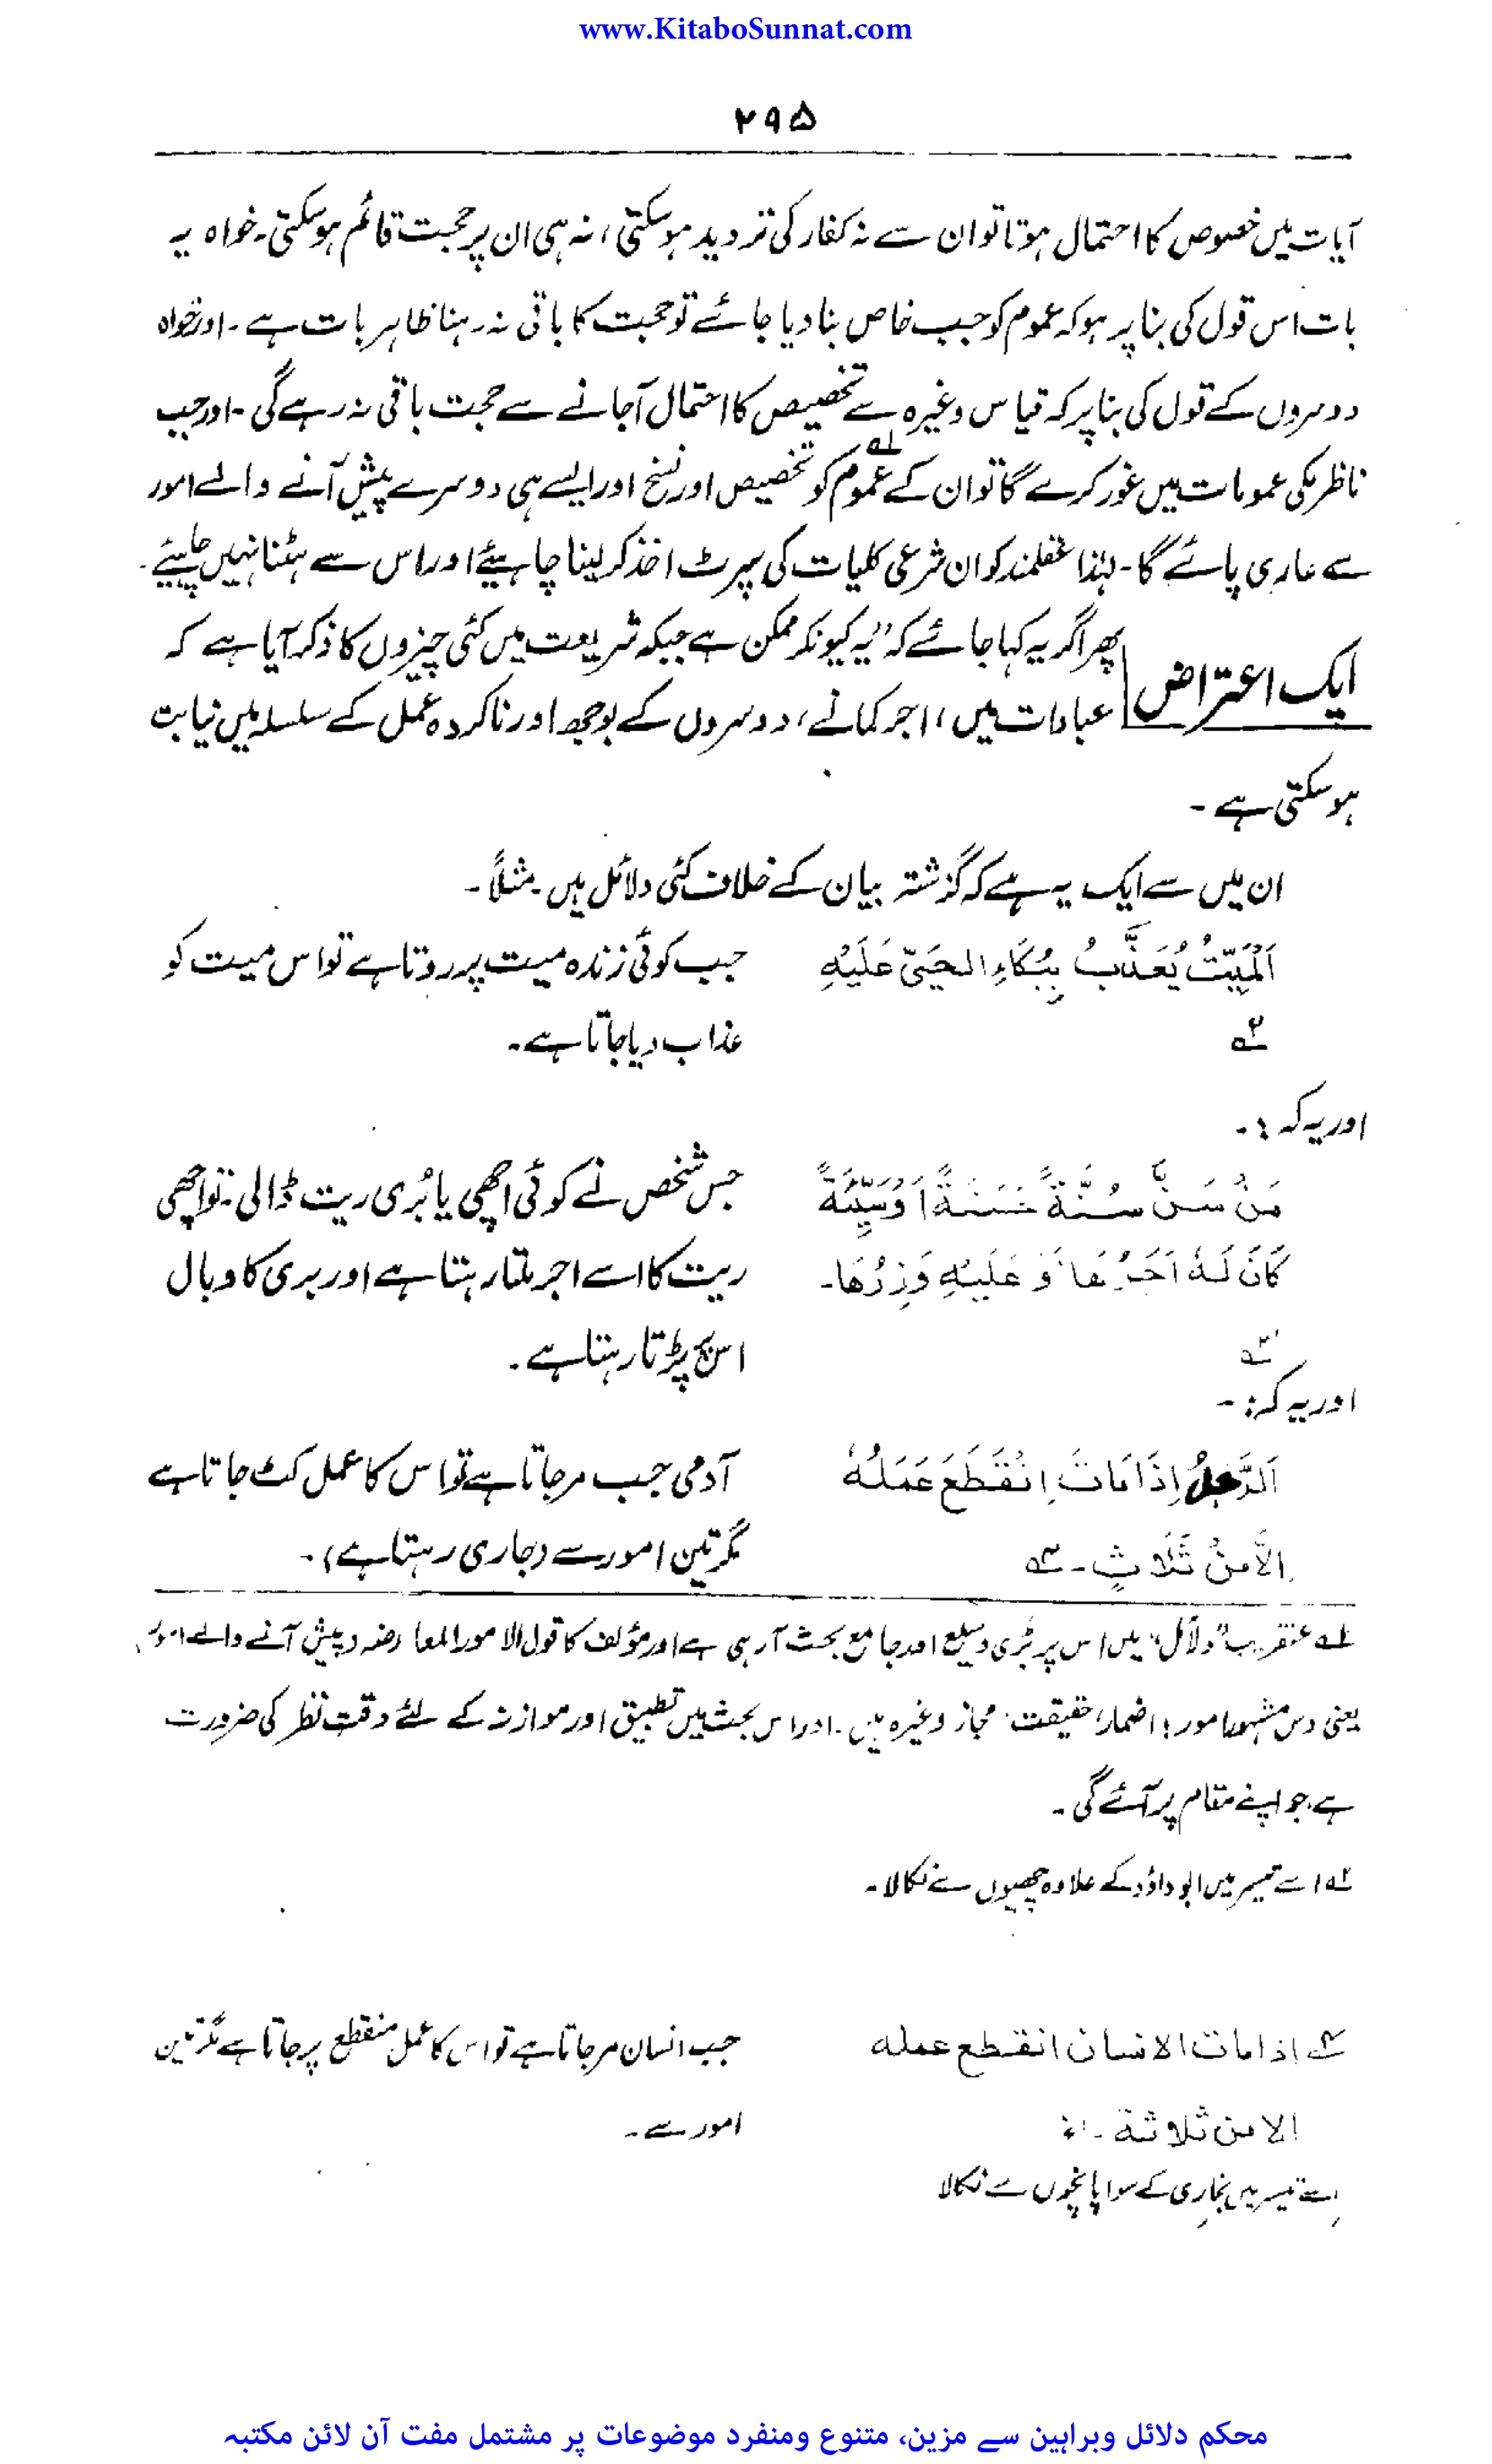 www.KitaboSunnat.com
۲۹۵
آیات میں خصوص کا احتمال ہوتا تو ان سے نہ کفار کی تردید ہوسکتی، نہ ہی ان پر حجت قائم ہوسکتی۔ خواہ یہ
بات اس قول کی بنا پر ہو کہ عموم کو جب خاص بنا دیا جائے تو حجت کا باقی نہ رہنا ظاہر بات ہے۔ اور خواہ
دوسروں کے قول کی بنا پر کہ قیاس وغیرہ سے تخصیص کا احتمال آجانے سے حجت باقی نہ رہے گی۔ اور جب
ناظر مکی عمومات میں غور کرے گا تو ان کے عموم ۱ کو تخصیص اور نسخ اور ایسے ہی دوسرے پیش آنے والے امور
سے عاری پائے گا۔ لہٰذا عقلمند کو ان شرعی کلیات کی سپرٹ اخذ کر لینا چاہیئے اور اس سے ہٹنا نہیں چاہیئے۔
ایک اعتراض پھر اگر یہ کہا جائے کہ ”یہ کیونکر ممکن ہے جبکہ شریعت میں کئی چیزوں کا ذکر آیا ہے کہ
عبادات میں، اجر کمانے، دوسروں کے بوجھ اور ناکردہ عمل کے سلسلہ میں نیابت
ہوسکتی ہے۔
ان میں سے ایک یہ ہے کہ گزشتہ بیان کے خلاف کئی دلائل ہیں۔ مثلاً۔
اَلْمَیِّتُ یُعَذَّبُ بِبُکَاءِ الْحَیِّ عَلَیْہِ جب کوئی زندہ میت پر روتا ہے تو اس میت کو
۲ عذاب دیا جاتا ہے۔
اور یہ کہ :۔
مَنْ سَنَّ سُنَّةً حَسَنَةً اَوْ سَیِّئَةً جس شخص نے کوئی اچھی یا بُری ریت ڈالی۔ تو اچھی
کَانَ لَہٗ اَجْرُھَا وَ عَلَیْہِ وِزْرُھَا۔ ریت کا اسے اجر ملتا رہتا ہے اور بری کا وبال
۳ اس پر پڑتا رہتا ہے۔
اور یہ کہ :۔
اَلرَّجُلُ اِذَا مَاتَ اِنْقَطَعَ عَمَلُہٗ آدمی جب مر جاتا ہے تو اس کا عمل کٹ جاتا ہے
اِلَّا مِنْ ثَلَاثٍ۔ مگر تین امور سے (جاری رہتا ہے)۔
۱ عنقریب ”دلائل“ میں اس پر بڑی وسیع اور جامع بحث آرہی ہے اور مؤلف کا قول الامور المعارضہ (پیش آنے والے امور)
یعنی دس مشہور امور؛ اضمار، حقیقت، مجاز وغیرہ ہیں۔ اور اس بحث میں تطبیق اور موازنہ کے لئے دقت نظر کی ضرورت
ہے جو اپنے مقام پر آئے گی۔
۲ اسے تیسیر میں ابو داؤد کے علاوہ چھیوں نے نکالا۔
اذا مات الانسان انقطع عملہ جب انسان مر جاتا ہے تو اس کا عمل منقطع ہوجاتا ہے مگر تین
الا من ثلاثة۔ امور سے۔
اسے تیسیر میں بخاری کے سوا پانچوں نے نکالا
محکم دلائل وبراہین سے مزین، متنوع ومنفرد موضوعات پر مشتمل مفت آن لائن مکتبہ